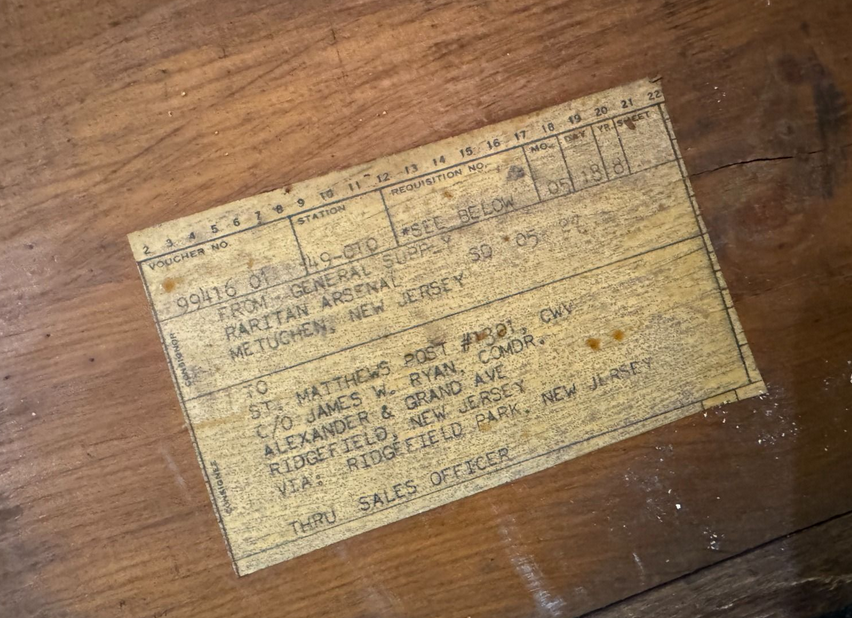 2 3 4 5 6 7 8 9 10 11 12 13 14 15 16 17 18 19 20 21 22
VOUCHER NO. STATION REQUISITION NO. MO. DAY YR. SHEET
99416 01 49-OTO *SEE BELOW 05 18 8
FROM GENERAL SUPPLY SO 05
RARITAN ARSENAL
METUCHEN, NEW JERSEY
CONSIGNOR
TO
ST. MATTHEWS POST CWV
C/O JAMES W. RYAN, COMDR.
ALEXANDER & GRAND AVE
RIDGEFIELD, NEW JERSEY
VIA: RIDGEFIELD PARK, NEW JERSEY
CONSIGNEE
THRU SALES OFFICER